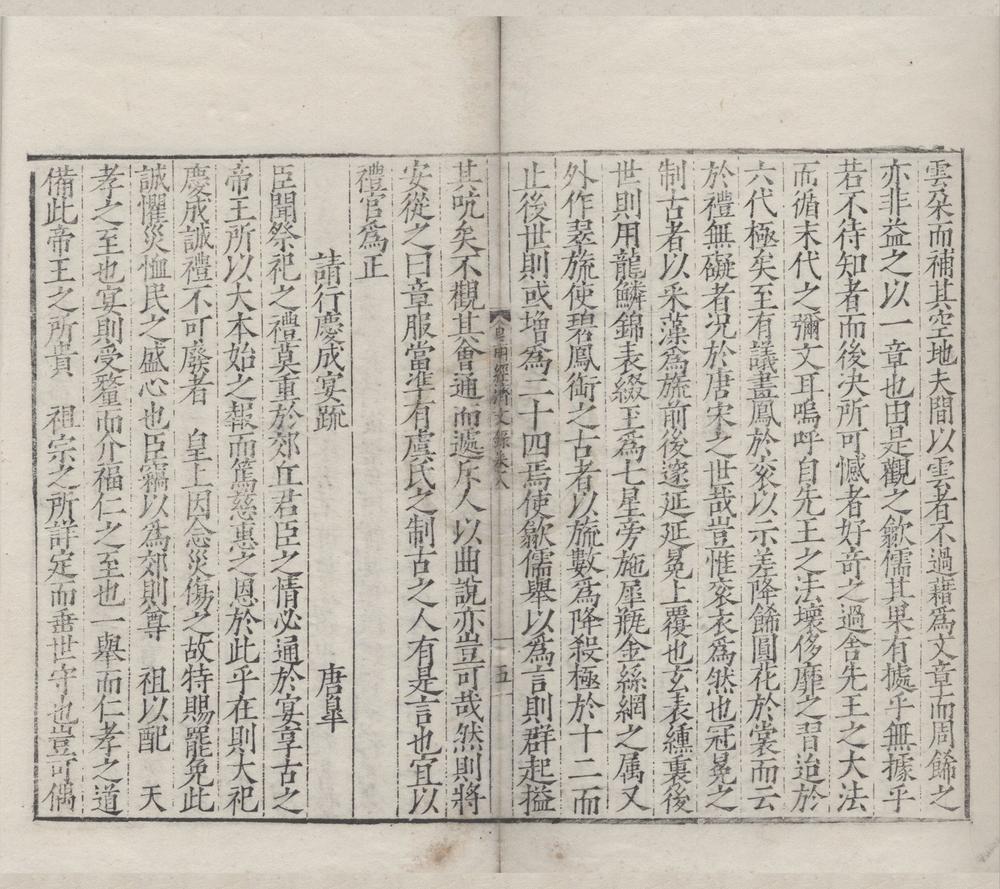 雲朵而補其空地夫間以雲者不過藉為文章而周餙之
亦非益之以一章也由是觀之歙儒其果有據乎無據乎
若不待知者而後决所可憾者好奇之過舍先王之大法
而循末代之彌文耳嗚呼自先王之法壊侈靡之習迨於
六代極矣至有議畫鳳於衮以示差降餙圓花於裳而云
於禮無礙者况於唐宋之世哉豈惟衮衣為然也冠冕之
制古者以采藻為旒前後邃延延冕上覆也玄表纁裏後
世則用龍鱗錦表綴玉為七星旁施犀瓶金絲網之属又
外作翠旒使碧鳳銜之古者以旒數為降殺極於十二而
止後世則或增為二十四焉使歙儒舉以為言則群起搤
其吭矣不觀其會通而遽斥人以曲說亦豈可哉然則將
安從之曰章服當准有虞氏之制古之人有是言也宜以
禮官為正
請行慶成宴疏 唐皐
臣聞祭祀之禮莫重於郊丘君臣之情必通於宴享古之
帝王所以大本始之報而篤慈惠之恩於此乎在則大祀
慶成誠禮不可廢者 皇上因念災傷之故特賜罷免此
誠懼災恤民之盛心也臣竊以為郊則尊 祖以配 天
孝之至也宴則受釐而介福仁之至也一舉而仁孝之道
備此帝王之所貴 祖宗之所詳定而垂世守也豈可偶
皇明經濟文錄卷八
五